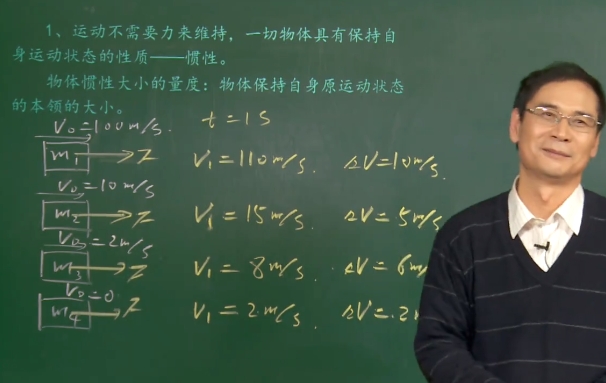 1、运动不需要力来维持，一切物体具有保持自
身运动状态的性质——惯性。
物体惯性大小的量度：物体保持自身原运动状态
的本领的大小。
V₀=100m/s. t=1S
m₁ V₁=110m/s. ΔV=10m/s.
V₀=10m/s
m₂ V₁=15m/s. ΔV=5m/s
V₀=2m/s
m₃ V₁=8m/s. ΔV=6m/
V₀=0
m₄ V₁=2m/s. ΔV=2